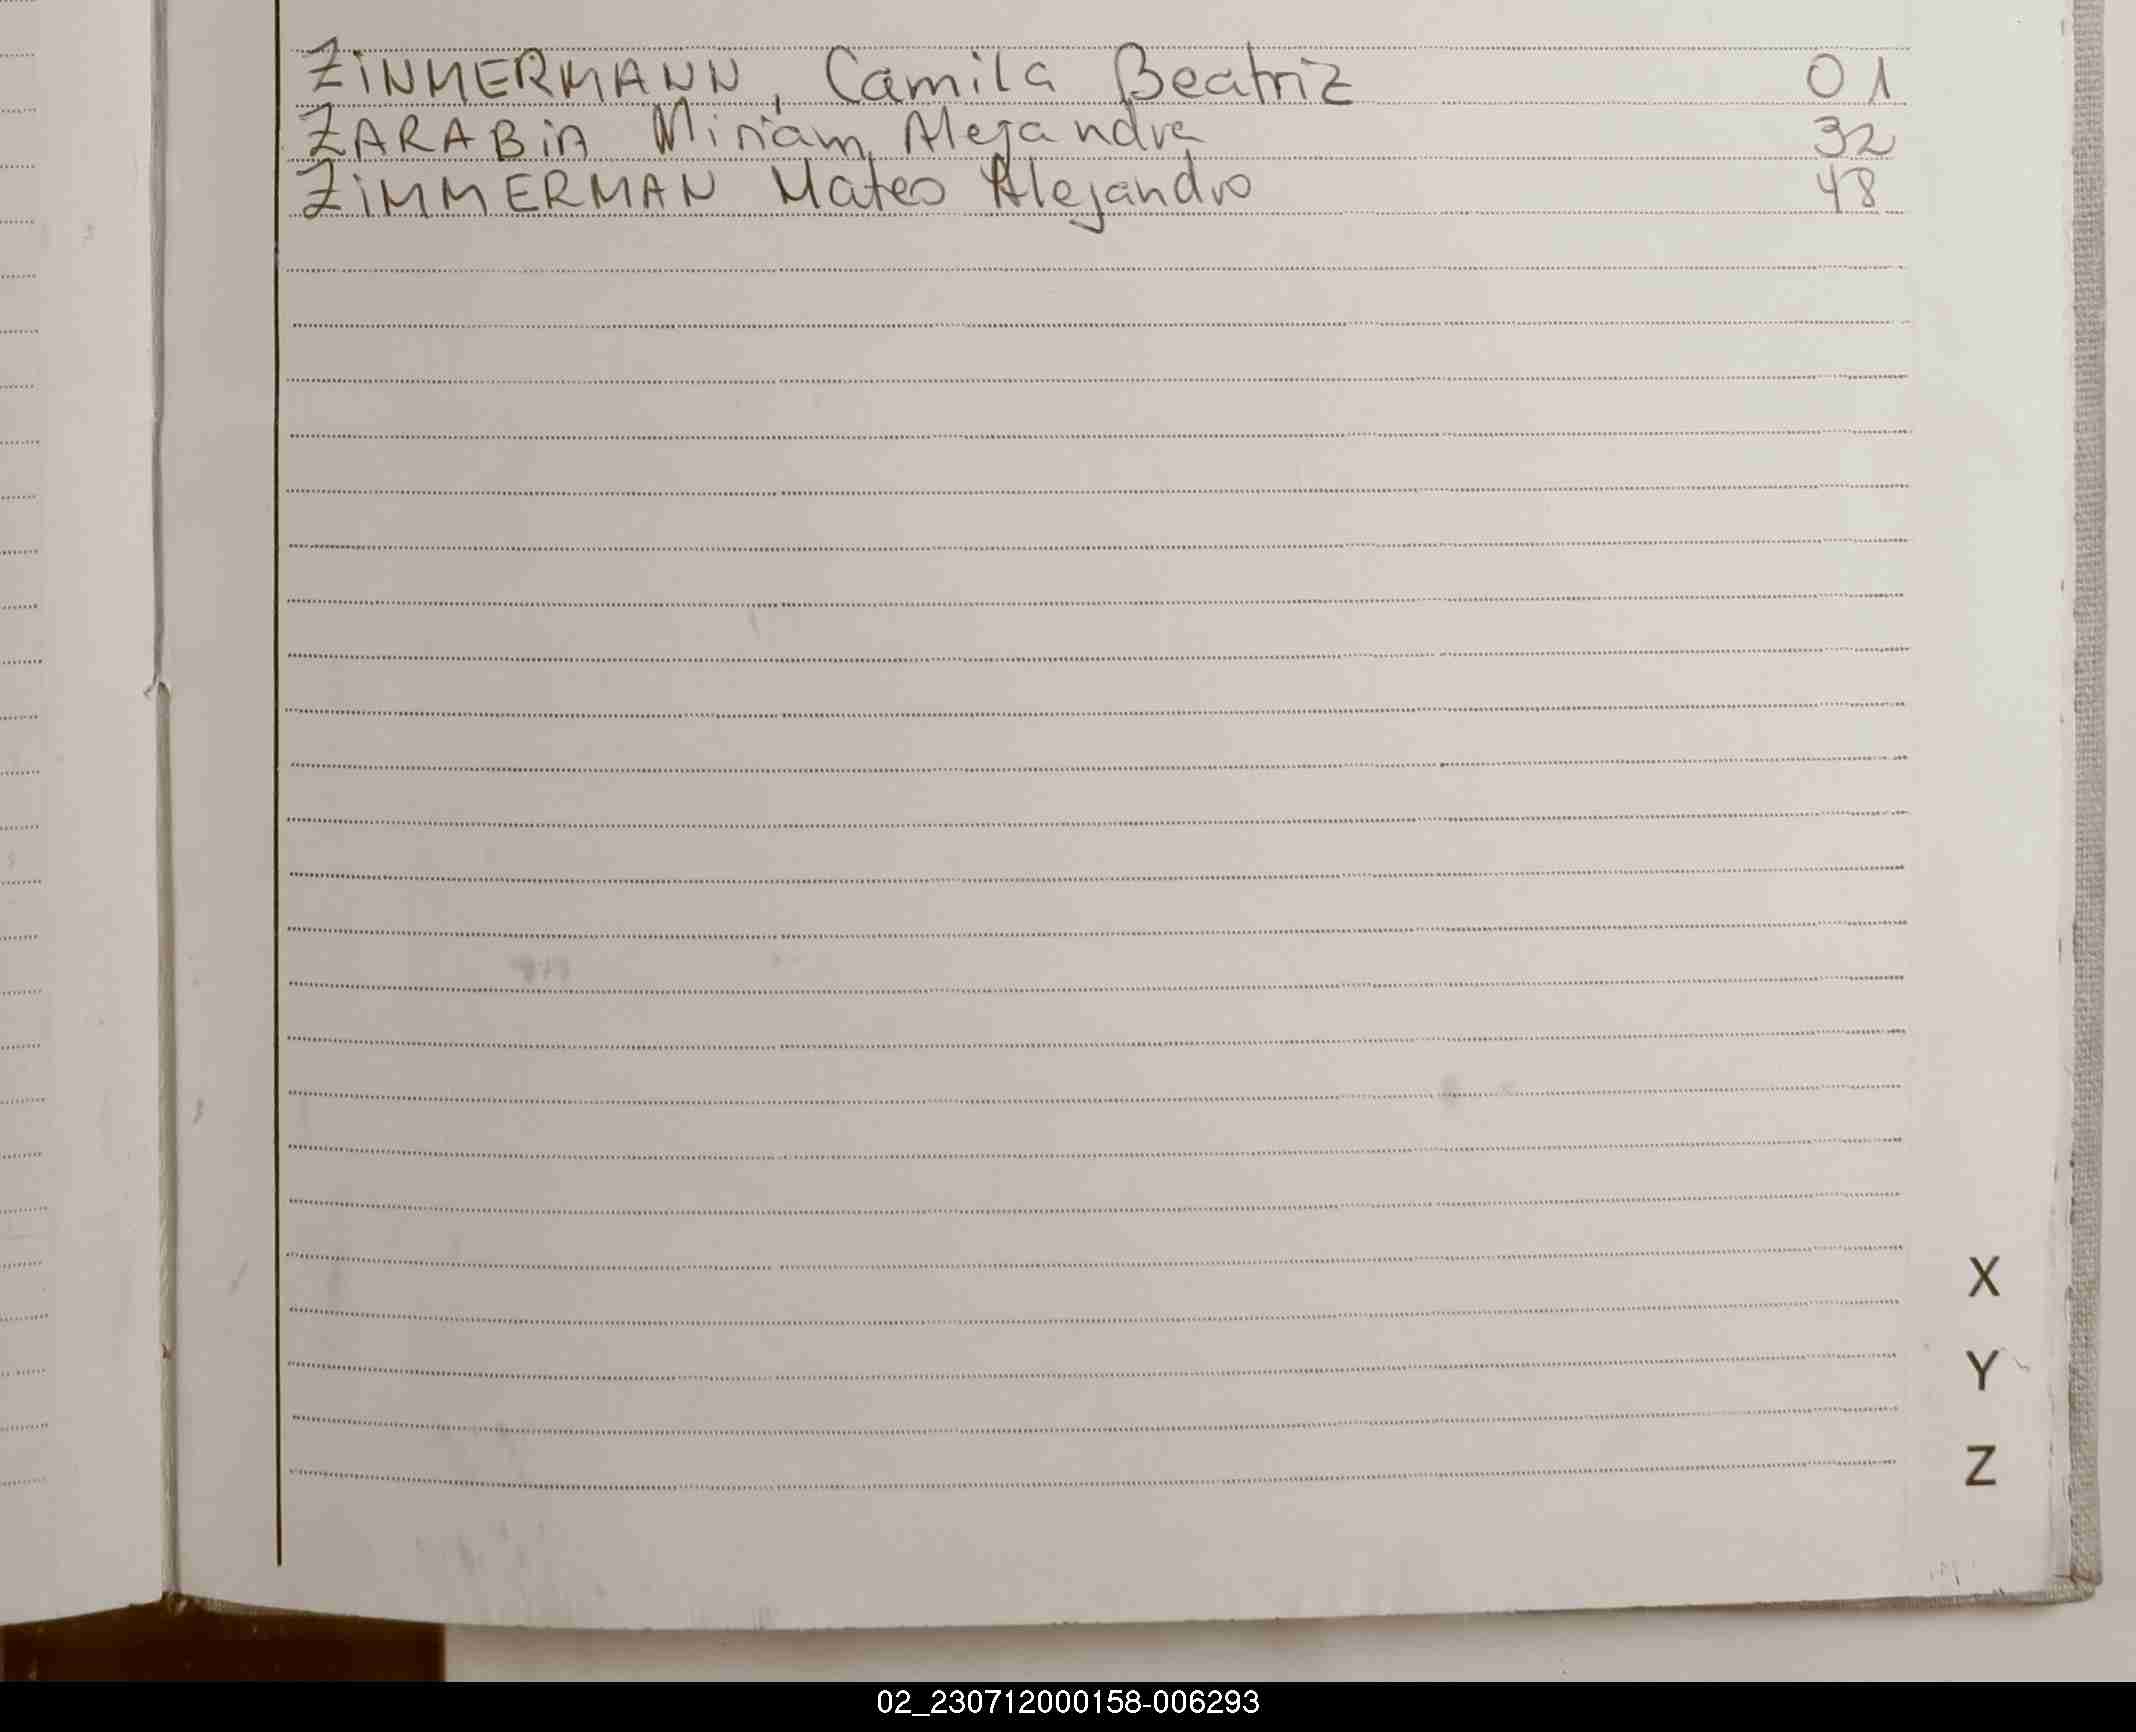 ZiNMERMANN, Camila Beatriz 01
ZARABiA Miriam Alejandra 32
ZiMMERMAN Mateo Alejandro 48
X
Y
Z
02_230712000158-006293